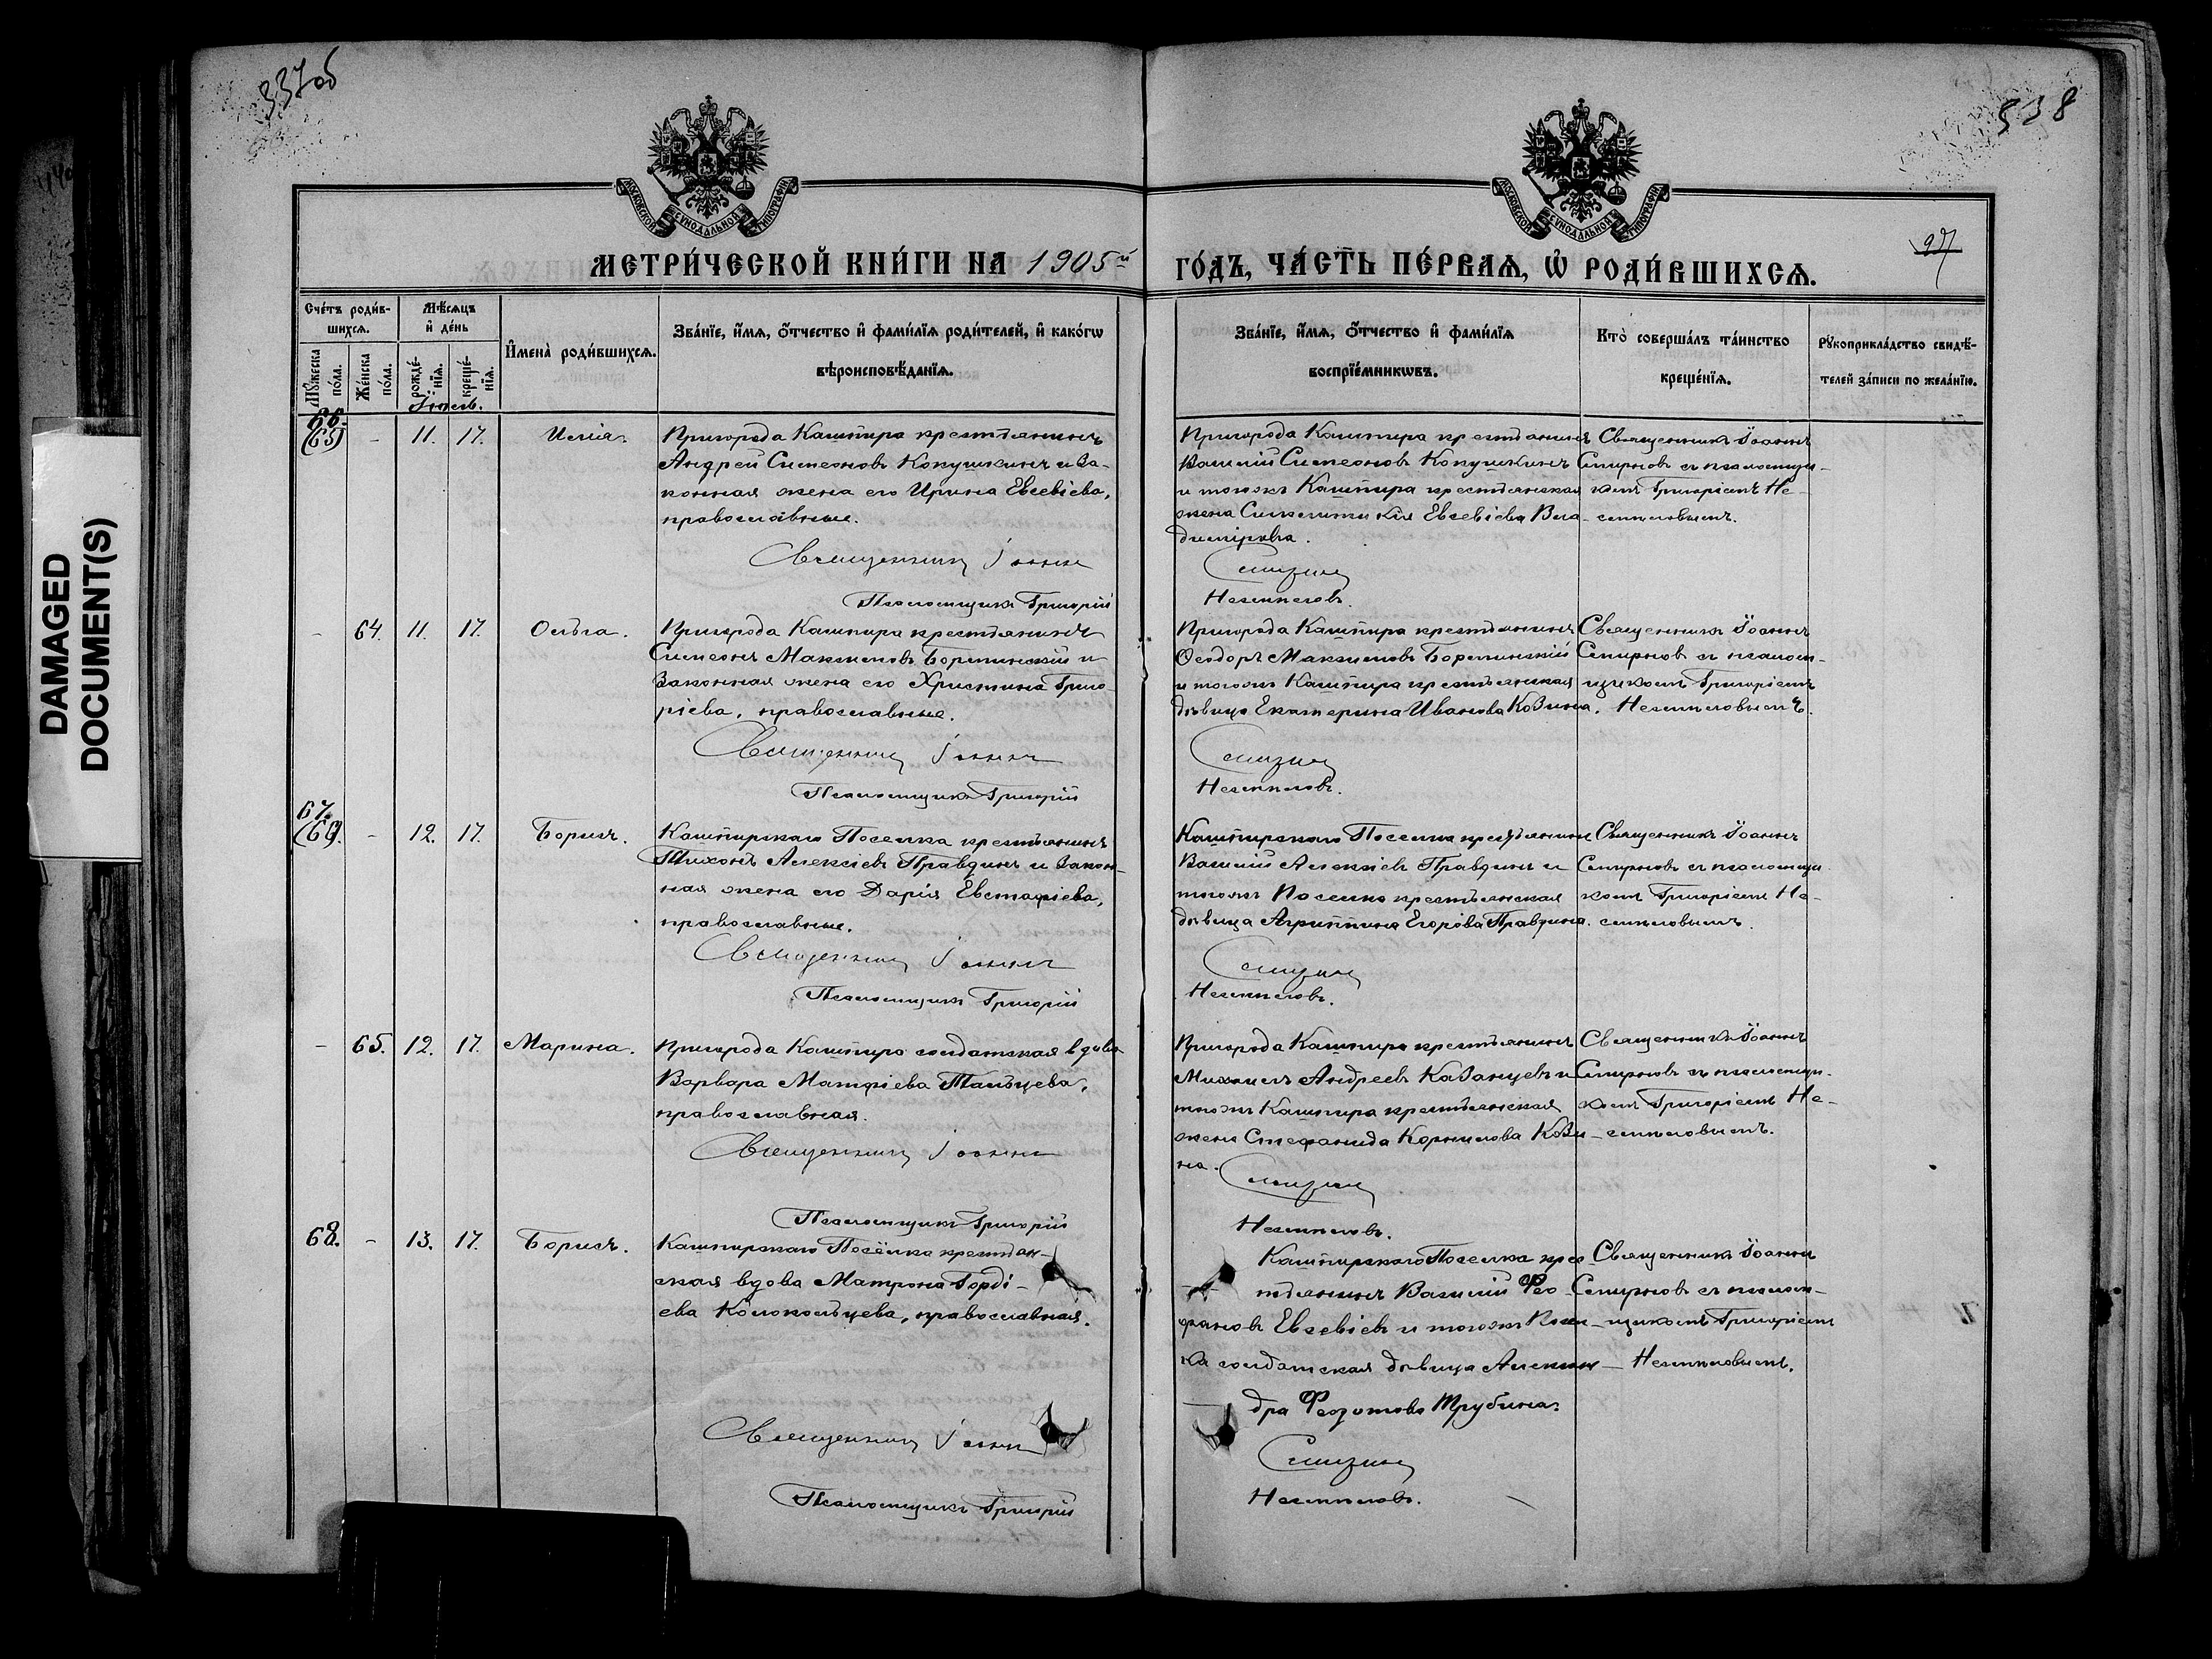 337об
338
DAMAGED
DOCUMENT(S)
МОСКОВСКОЙ СѴНОДАЛЬНОЙ ТИПОГРАФІИ
МОСКОВСКОЙ СѴНОДАЛЬНОЙ ТИПОГРАФІИ
97
МЕТРИ́ЧЕСКОЙ КНИ́ГИ НА 1905й
ГО́ДЪ, ЧА́СТЬ ПЕ́РВАѦ, Ѡ҆ РОДИ́ВШИХСѦ.
Сче́тъ роди́в-
шихсѧ.
Мꙋ́жеска
по́ла.
Же́нска
по́ла.
Мѣ́сѧцъ
и҆ де́нь
рожде́-
нїѧ.
креще́-
нїѧ.
И҆мена̀ роди́вшихсѧ.
Зва́нїе, и҆́мѧ, ѻ҆́тчество и҆ фами́лїѧ роди́телей, и҆ како́гѡ
вѣроисповѣ́данїѧ.
Зва́нїе, и҆́мѧ, ѻ҆́тчество и҆ фами́лїѧ
воспрїе́мникѡвъ.
Кто̀ соверша́лъ та́инство
креще́нїѧ.
Рꙋкоприкла́дство свидѣ́-
телей за́писи по жела́нїю.
Іюль.
66.
(65) - 11. 17. Илія.
Пригорода Кашпира крестьянинъ
Андрей Симеоновъ Кокушкинъ и за-
конная жена его Ирина Евсевіева,
православные.
Священникъ Іоаннъ
Псаломщикъ Григорій
Пригорода Кашпира крестьянинъ
Василій Симеоновъ Кокушкинъ
и тогожъ Кашпира крестьянская
жена Синклитикія Евсевіева Вла-
димірова.
Смирновъ
Несмеловъ.
Священникъ Іоаннъ
Смирновъ съ псаломщи-
комъ Григоріемъ Не-
смѣловымъ.
- 64. 11. 17. Ольга.
Пригорода Кашпира крестьянинъ
Симеонъ Максимовъ Борминскій и
законная жена его Христина Григо-
ріева, православные.
Священникъ Іоаннъ
Псаломщикъ Григорій
Пригорода Кашпира крестьянинъ
Ѳеодоръ Максимовъ Борминскій
и тогожъ Кашпира крестьянская
дѣвица Екатерина Иванова Козина.
Смирновъ
Несмеловъ.
Священникъ Іоаннъ
Смирновъ съ псалом-
щикомъ Григоріемъ
Несмѣловымъ.
67.
(66). - 12. 17. Борисъ.
Кашпирскаго Поселка крестьянинъ
Тихонъ Алексіевъ Правдинъ и закон-
ная жена его Дарія Евстафіева,
православные.
Священникъ Іоаннъ
Псаломщикъ Григорій
Кашпирскаго Поселка крестьянинъ
Василій Алексіевъ Правдинъ и
тогожъ Поселка крестьянская
дѣвица Агриппина Егорова Правдина.
Смирновъ
Несмеловъ.
Священникъ Іоаннъ
Смирновъ съ псаломщи-
комъ Григоріемъ Не-
смѣловымъ.
- 65. 12. 17. Марина.
Пригорода Кашпира солдатская вдова
Варвара Матфіева Тальцева,
православная.
Священникъ Іоаннъ
Псаломщикъ Григорій
Пригорода Кашпира крестьянинъ
Михаилъ Андреевъ Казанцевъ и
тогожъ Кашпира крестьянская
жена Стефанида Корнилова Кози-
на.
Смирновъ
Несмеловъ.
Священникъ Іоаннъ
Смирновъ съ псаломщи-
комъ Григоріемъ Не-
смѣловымъ.
68. - 13. 17. Борисъ.
Кашпирскаго Посёлка крестьян-
ская вдова Матрона Горді-
ева Колокольцева, православная.
Священникъ Іоаннъ
Псаломщикъ Григорій
Кашпирскаго Поселка крес-
тьянинъ Василій Фео-
фановъ Евсевіевъ и тогожъ Посел-
ка солдатская дѣвица Алексан-
дра Феодотова Трубина.
Смирновъ
Несмеловъ.
Священникъ Іоаннъ
Смирновъ съ псалом-
щикомъ Григоріемъ
Несмѣловымъ.